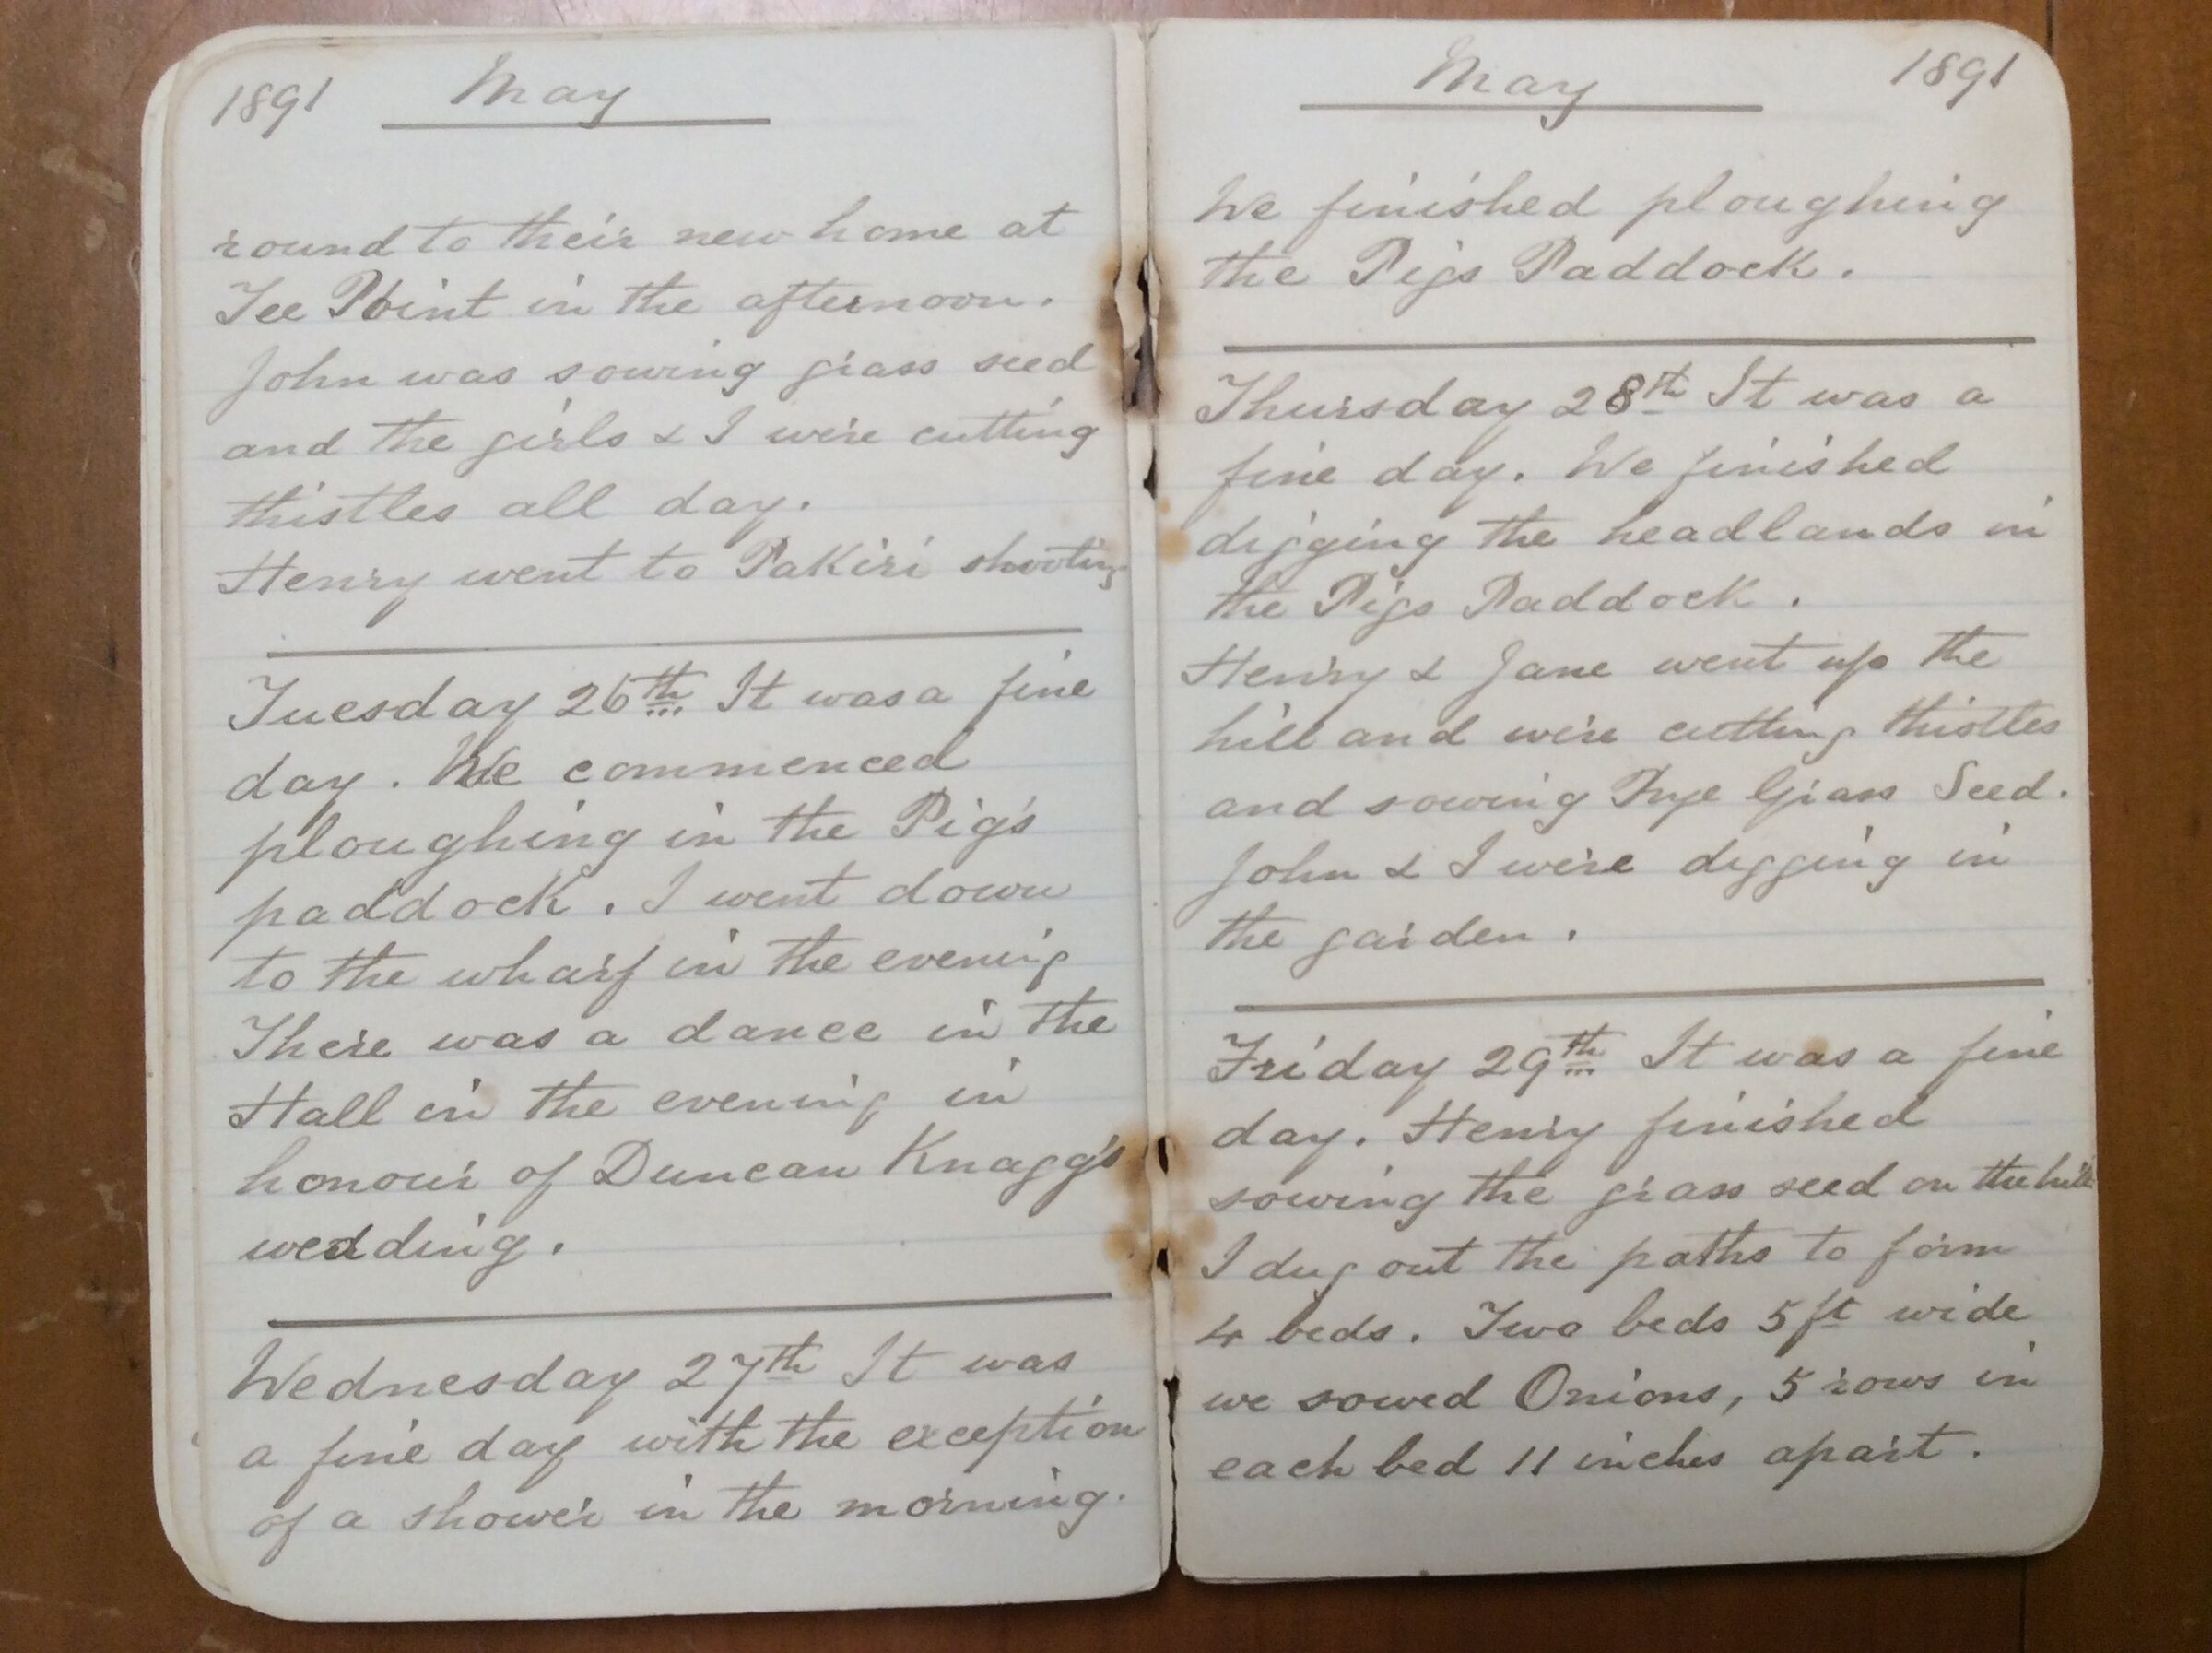 1891 May
round to their new home at
Tee Point in the afternoon.
John was sowing grass seed
and the girls & I were cutting
thistles all day.
Henry went to Pakiri shooting
Tuesday 26th It was a fine
day. We commenced
ploughing in the Pig's
paddock. I went down
to the wharf in the evening
There was a dance in the
Hall in the evening in
honour of Duncan Knagg's
wedding.
Wednesday 27th It was
a fine day with the exception
of a shower in the morning.
May 1891
We finished ploughing
the Pigs Paddock.
Thursday 28th It was a
fine day. We finished
digging the headlands in
the Pigs Paddock.
Henry & Jane went up the
hill and were cutting thistles
and sowing Rye Grass Seed.
John & I were digging in
the garden.
Friday 29th It was a fine
day. Henry finished
sowing the grass seed on the hill
I dug out the paths to form
4 beds. Two beds 5 ft wide
we sowed Onions, 5 rows in
each bed 11 inches apart.